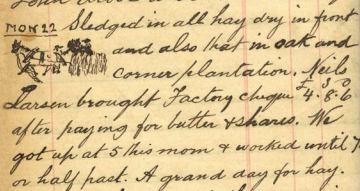 MON 22 Sledged in all hay dry in front
and also that in oak and
corner plantation. Neils
£ s D
Larsen brought Factory cheque 4.8.6
after paying for butter & shares. We
got up at 5 this morn & worked until 7
or half past. A grand day for hay.